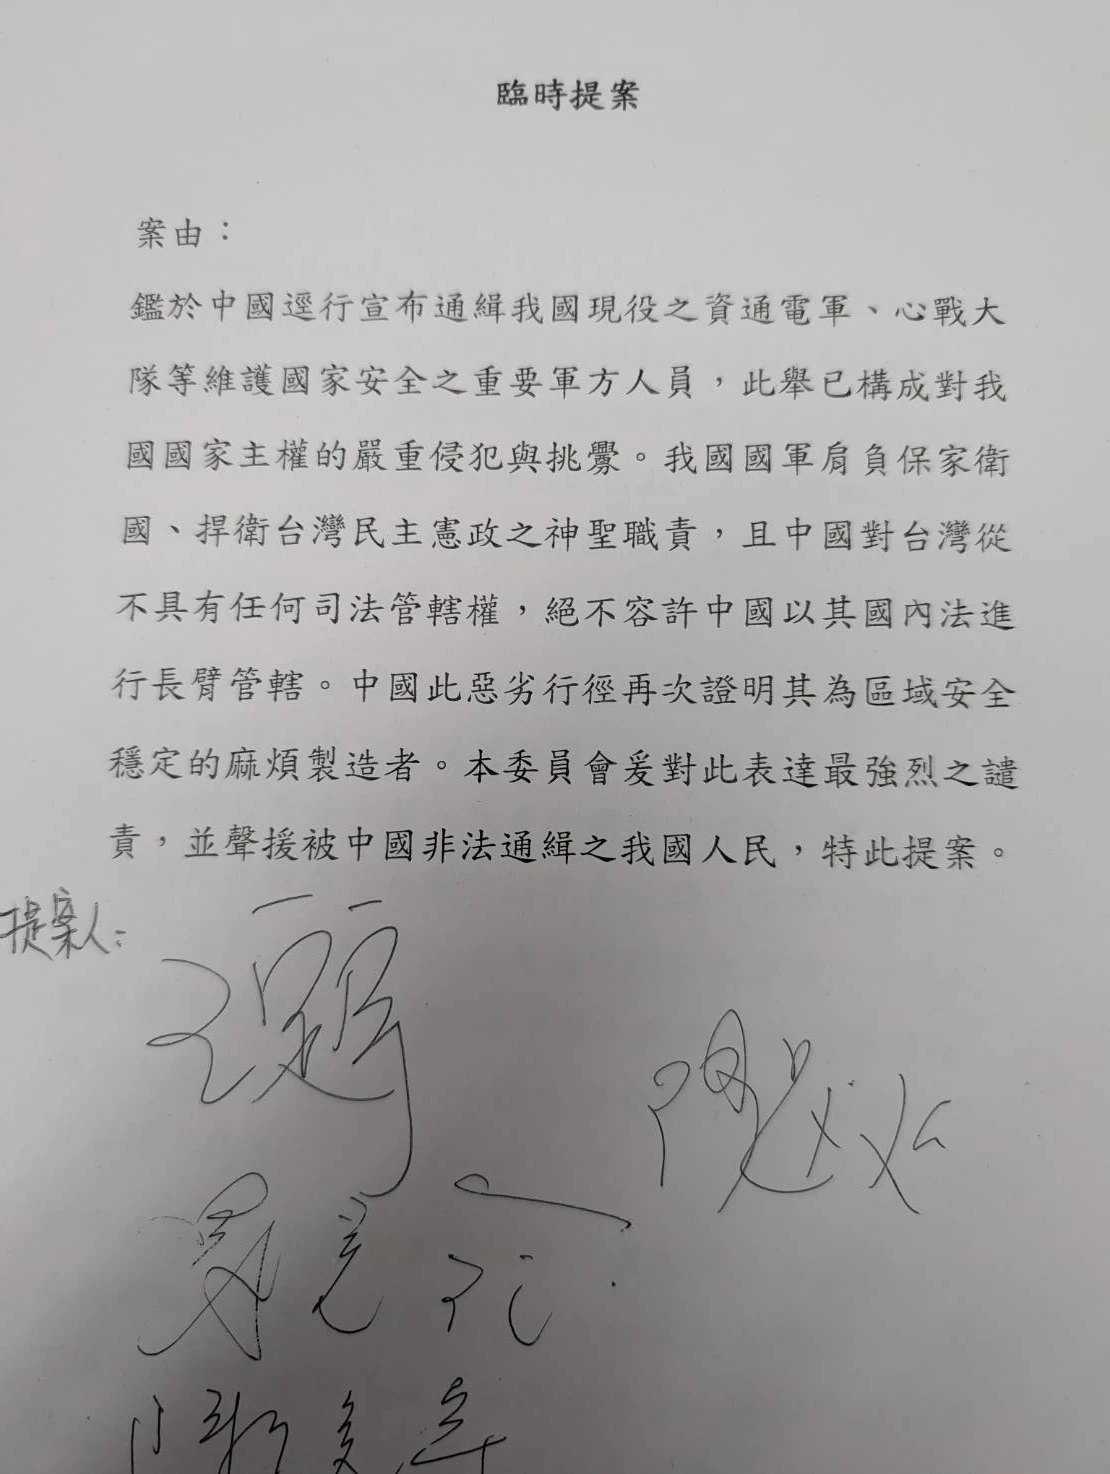 臨時提案
案由：
鑑於中國逕行宣布通緝我國現役之資通電軍、心戰大
隊等維護國家安全之重要軍方人員，此舉已構成對我
國國家主權的嚴重侵犯與挑釁。我國國軍肩負保家衛
國、捍衛台灣民主憲政之神聖職責，且中國對台灣從
不具有任何司法管轄權，絕不容許中國以其國內法進
行長臂管轄。中國此惡劣行徑再次證明其為區域安全
穩定的麻煩製造者。本委員會爰對此表達最強烈之譴
責，並聲援被中國非法通緝之我國人民，特此提案。
提案人：